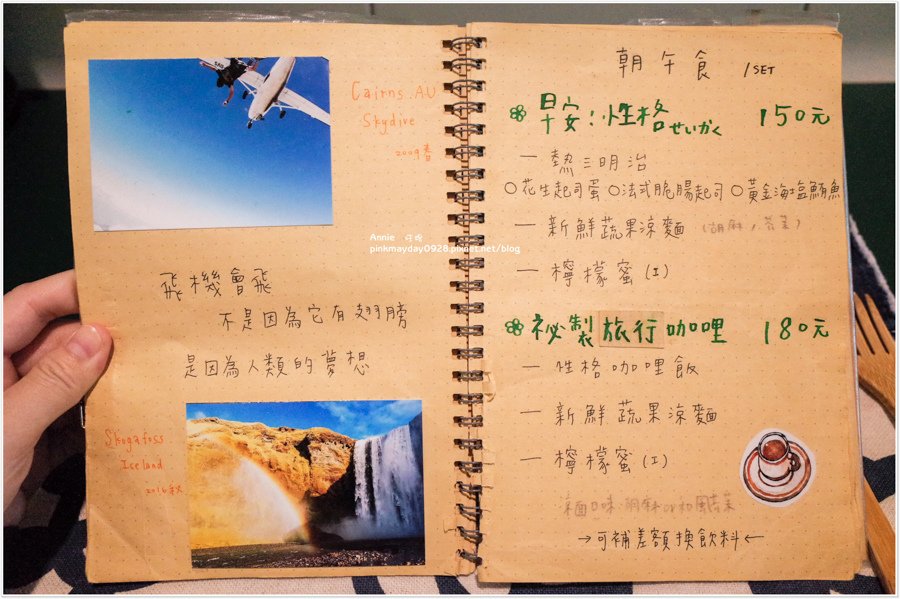 Cairns. AU
Skydive
2009春
Annie
pinkmayday0928.pixnet.net/blog
飛機會飛
不是因為它有翅膀
是因為人類的夢想
Skogafoss
Iceland
2016秋
朝午食 /SET
早安!性格 せいかく 150元
一 熱三明治
○花生起司蛋 ○法式脆腸起司 ○黃金海塩鮪魚
一 新鮮蔬果涼麵 (胡麻/
一 檸檬蜜(I)
祕製旅行咖哩 180元
一 性格咖哩飯
一 新鮮蔬果涼麵
一 檸檬蜜(I)
涼面口味:胡麻or和風
→可補差額換飲料←